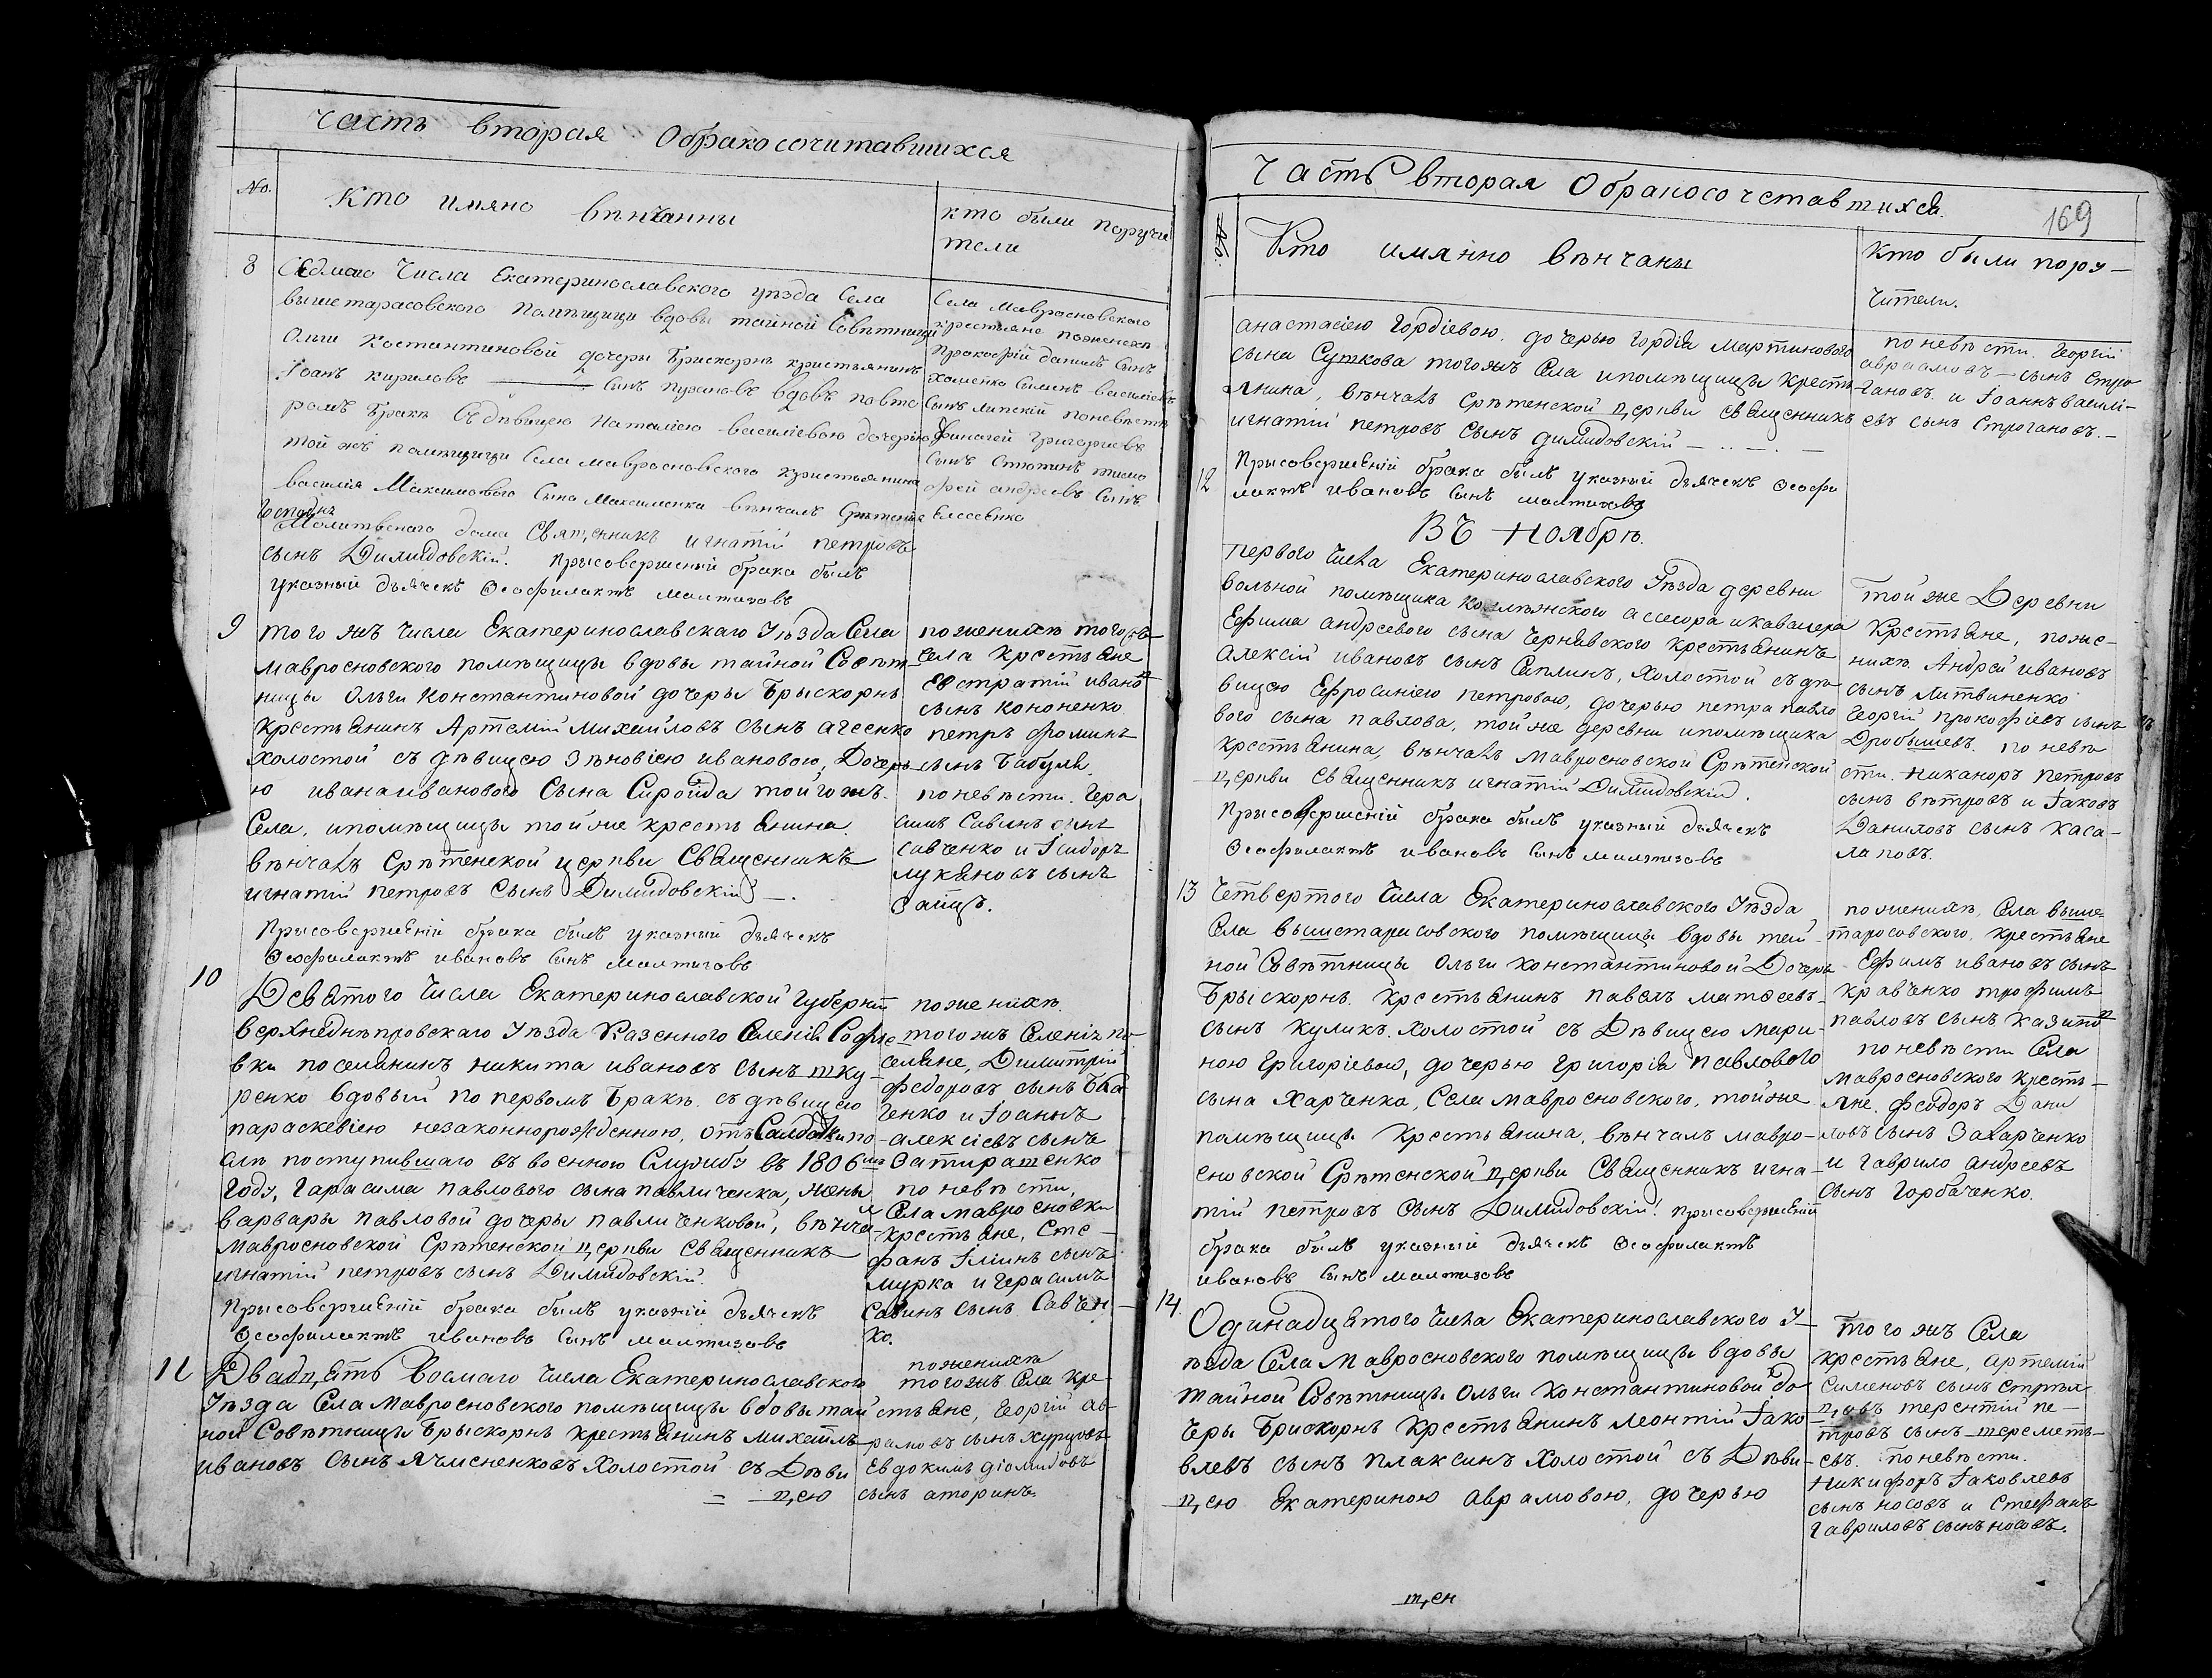 Часть вторая Обракосочитавшихся
No.
Кто имяно венчанны
кто были поручи
тели
8
Седмаго Числа Екатеринославского уѣзда Села
вышетарасовского Помѣщици вдовы тайной Совѣтници
Ольги Костантиновой дочеры Брискорнъ христьянинъ
Iоанъ кириловъ сынъ вдовъ повто
ромъ бракѣ Сѣдѣвицею Наталиею василиевою дочерью
той жъ помѣщици Села мавросновского христьянина
василия Максимового Сына Максименка венчалъ
Молитвеного дома Священникъ игнатiй петровъ
сынъ Димидовскiй. Присовершенiй брака былъ
указный дьячекъ Ѳеофилактъ малтизовъ
Села Мавросновского
христьяне поженеха
Прокофiй данилъ Сынъ
хоменко Сименъ василiевъ
Сынъ липскiй поневести
Григориевъ
Сынъ тимо
фей андреевъ Сынъ
Елесенко
9
того жъ числа Екатеринославскаго Уѣзда Села
мавросновского помѣщицы вдовы тайной Совѣт
ницы Ольги Константиновой дочеры Брыскорнъ
крестьянинъ Артемiй Михайловъ сынъ агеенко
холостой съ дѣвицею Зѣновiею ивановою, Дочерь
ю ивана иванового Сына Сироида той гожъ
Села, ипомѣщицы той же крестьянина.
вѣнчалъ Срѣтенской церкви Священникъ
игнатiй петровъ Сынъ Димидовскiй —.
Прысовершенiй брака былъ указный дьячекъ
Ѳеофилактъ ивановъ Сынъ малтизовъ
поженихѣ тогожъ
села крестьяне
Евстратiй ивановъ
сынъ кононенко
петръ фоминъ
сынъ бабуля.
поневѣсти. Гера
симъ Савинъ сынъ
савченко и Iсидоръ
лукяновъ сынъ
Заицъ.
10
Девятого Числа Екатеринославской Губернiи
Верхнеднѣпровскаго Уѣзда Казенного Селенiя Софие
вки поселянинъ никита ивановъ сынъ шку-
ренко вдовый по первомъ Бракѣ. съ дѣвицею
параскевiею незаконнорожденною, отъ Салдатки по-
слѣ поступившаго въ военною Службу въ 1806мъ
году, гарасима павлового сына павличенка, жены
варвары павловой дочеры павличенковой, вѣнчалъ
Мавросновской Срѣтенской церкви Священникъ
игнатiй петровъ сынъ Димидовскiй.
Прысовершенiй брака былъ указнiй дьячекъ
Ѳеофилактъ ивановъ Сынъ малтизовъ
поженихѣ.
того жъ Селенiя по-
селяне, Димитрiй
федоровъ сынъ
ченко и Iоаннъ
алексiевъ сынъ
Затирашенко
поневѣсти,
Села мавросновки
крестьяне, Сте-
фанъ Iлiинъ сынъ
мурка и Герасимъ
Савинъ сынъ Савчен-
ко.
11
Двадцять Восмаго Числа Екатеринославского
Уѣзда Села Мавросновского помѣщицы вдовы тай
ной Совѣтницы Брыскорнъ крестьянинъ михаилъ
ивановъ Сынъ Ячменековъ холостой съ Дѣви
= цею
поженихѣ
тогожъ Села кре-
стьяне, Георгiй ав-
рамовъ сынъ
Евдокимъ дiомидовъ
сынъ аторинъ
Часть вторая Обракосочставшихся.
169
No.
Кто имянно вѣнчаны
Кто были пору-
чители.
анастасiею Гордiевою, дочерью Гордiя мартинового
сына Суткова тогожъ Села ипомѣщицы кресть-
янина, вѣнчалъ Срѣтенской церкви священникъ
игнатiй петровъ Сынъ димидовскiй
Прысовершенiй брака былъ указный дьячекъ Ѳеофи
лактъ ивановъ Сынъ малтизовъ
поневѣсти. Георгiй
авраамовъ сынъ Стро
гановъ. и Iоаннъ василi-
евъ сынъ Строгановъ.
12
Въ Ноябрѣ.
первого числа Екатеринославского Уѣзда деревни
вольной помѣщика ассесора икавалера
Ефима андреевого сына Чернявского крестьянинъ
Алексiй ивановъ сынъ Саплинъ, холостой съ дѣ-
вицею Ефросинiею петровою, дочерью петра павло
вого сына павлова, той же деревни ипомѣщика
крестьянина, вѣнчалъ мавросновской Срѣтенской
церкви Священникъ игнатiй Димидовскiй.
Прысовершенiй брака былъ указный дьячекъ
Ѳеофилактъ ивановъ Сынъ малтизовъ
той же Деревни
крестьяне, поже-
нихѣ. Андрей ивановъ
сынъ литвиненко
Георгiй прокофiевъ сынъ
Дробышевъ. поневѣ
сти. никаноръ петровъ
сынъ вѣтровъ и Iаковъ
Даниловъ сынъ каса-
лаповъ.
13
Четвертого Числа Екатеринославского Уѣзда
Села вышетарасовского помѣщицы вдовы тай-
ной Совѣтницы Ольги Константиновой Дочеры
Брыскорнъ. крестьянинъ павелъ матвеевъ-
сынъ куликъ. холостой съ Дѣвицею мари-
ною григорiевою, дочерью григорiя павлового
сына Харченка, Села мавросновского, той же
помѣщицы крестьянина, вѣнчалъ мавро-
сновской Срѣтенской церкви Священникъ игна-
тiй петровъ сынъ Димидовскiй. Прысовершенiй
брака былъ указный дьячекъ Ѳеофилактъ
ивановъ Сынъ малтизовъ
поженихѣ, Села выше-
таросовского. крестьяне
Ефимъ ивановъ сынъ
кравченко трофимъ
павловъ сынъ
поневѣсти Села
мавросновского кресть-
яне. феодоръ Дани
ловъ сынъ Захарченко
и гаврило андреевъ
Сынъ Горбаченко.
14
Одинадцятого числа Екатеринославского У-
ѣзда Села Мавросновского помѣщицы вдовы
тайной Совѣтницы Ольги Константиновой до
черы Брискорнъ крестьянинъ леонтiй Iако
влевъ сынъ плаксинъ холостой съ Дѣви-
цею Екатериною аврамовою, дочерью
того жъ Села
крестьяне, артемiй
Сименовъ сынъ стрѣл
цовъ терентiй пе-
тровъ сынъ шереметь-
евъ. поневѣсти.
Никифоръ Iаковлевъ
сынъ носовъ и Стефанъ
Гавриловъ сынъ носовъ.